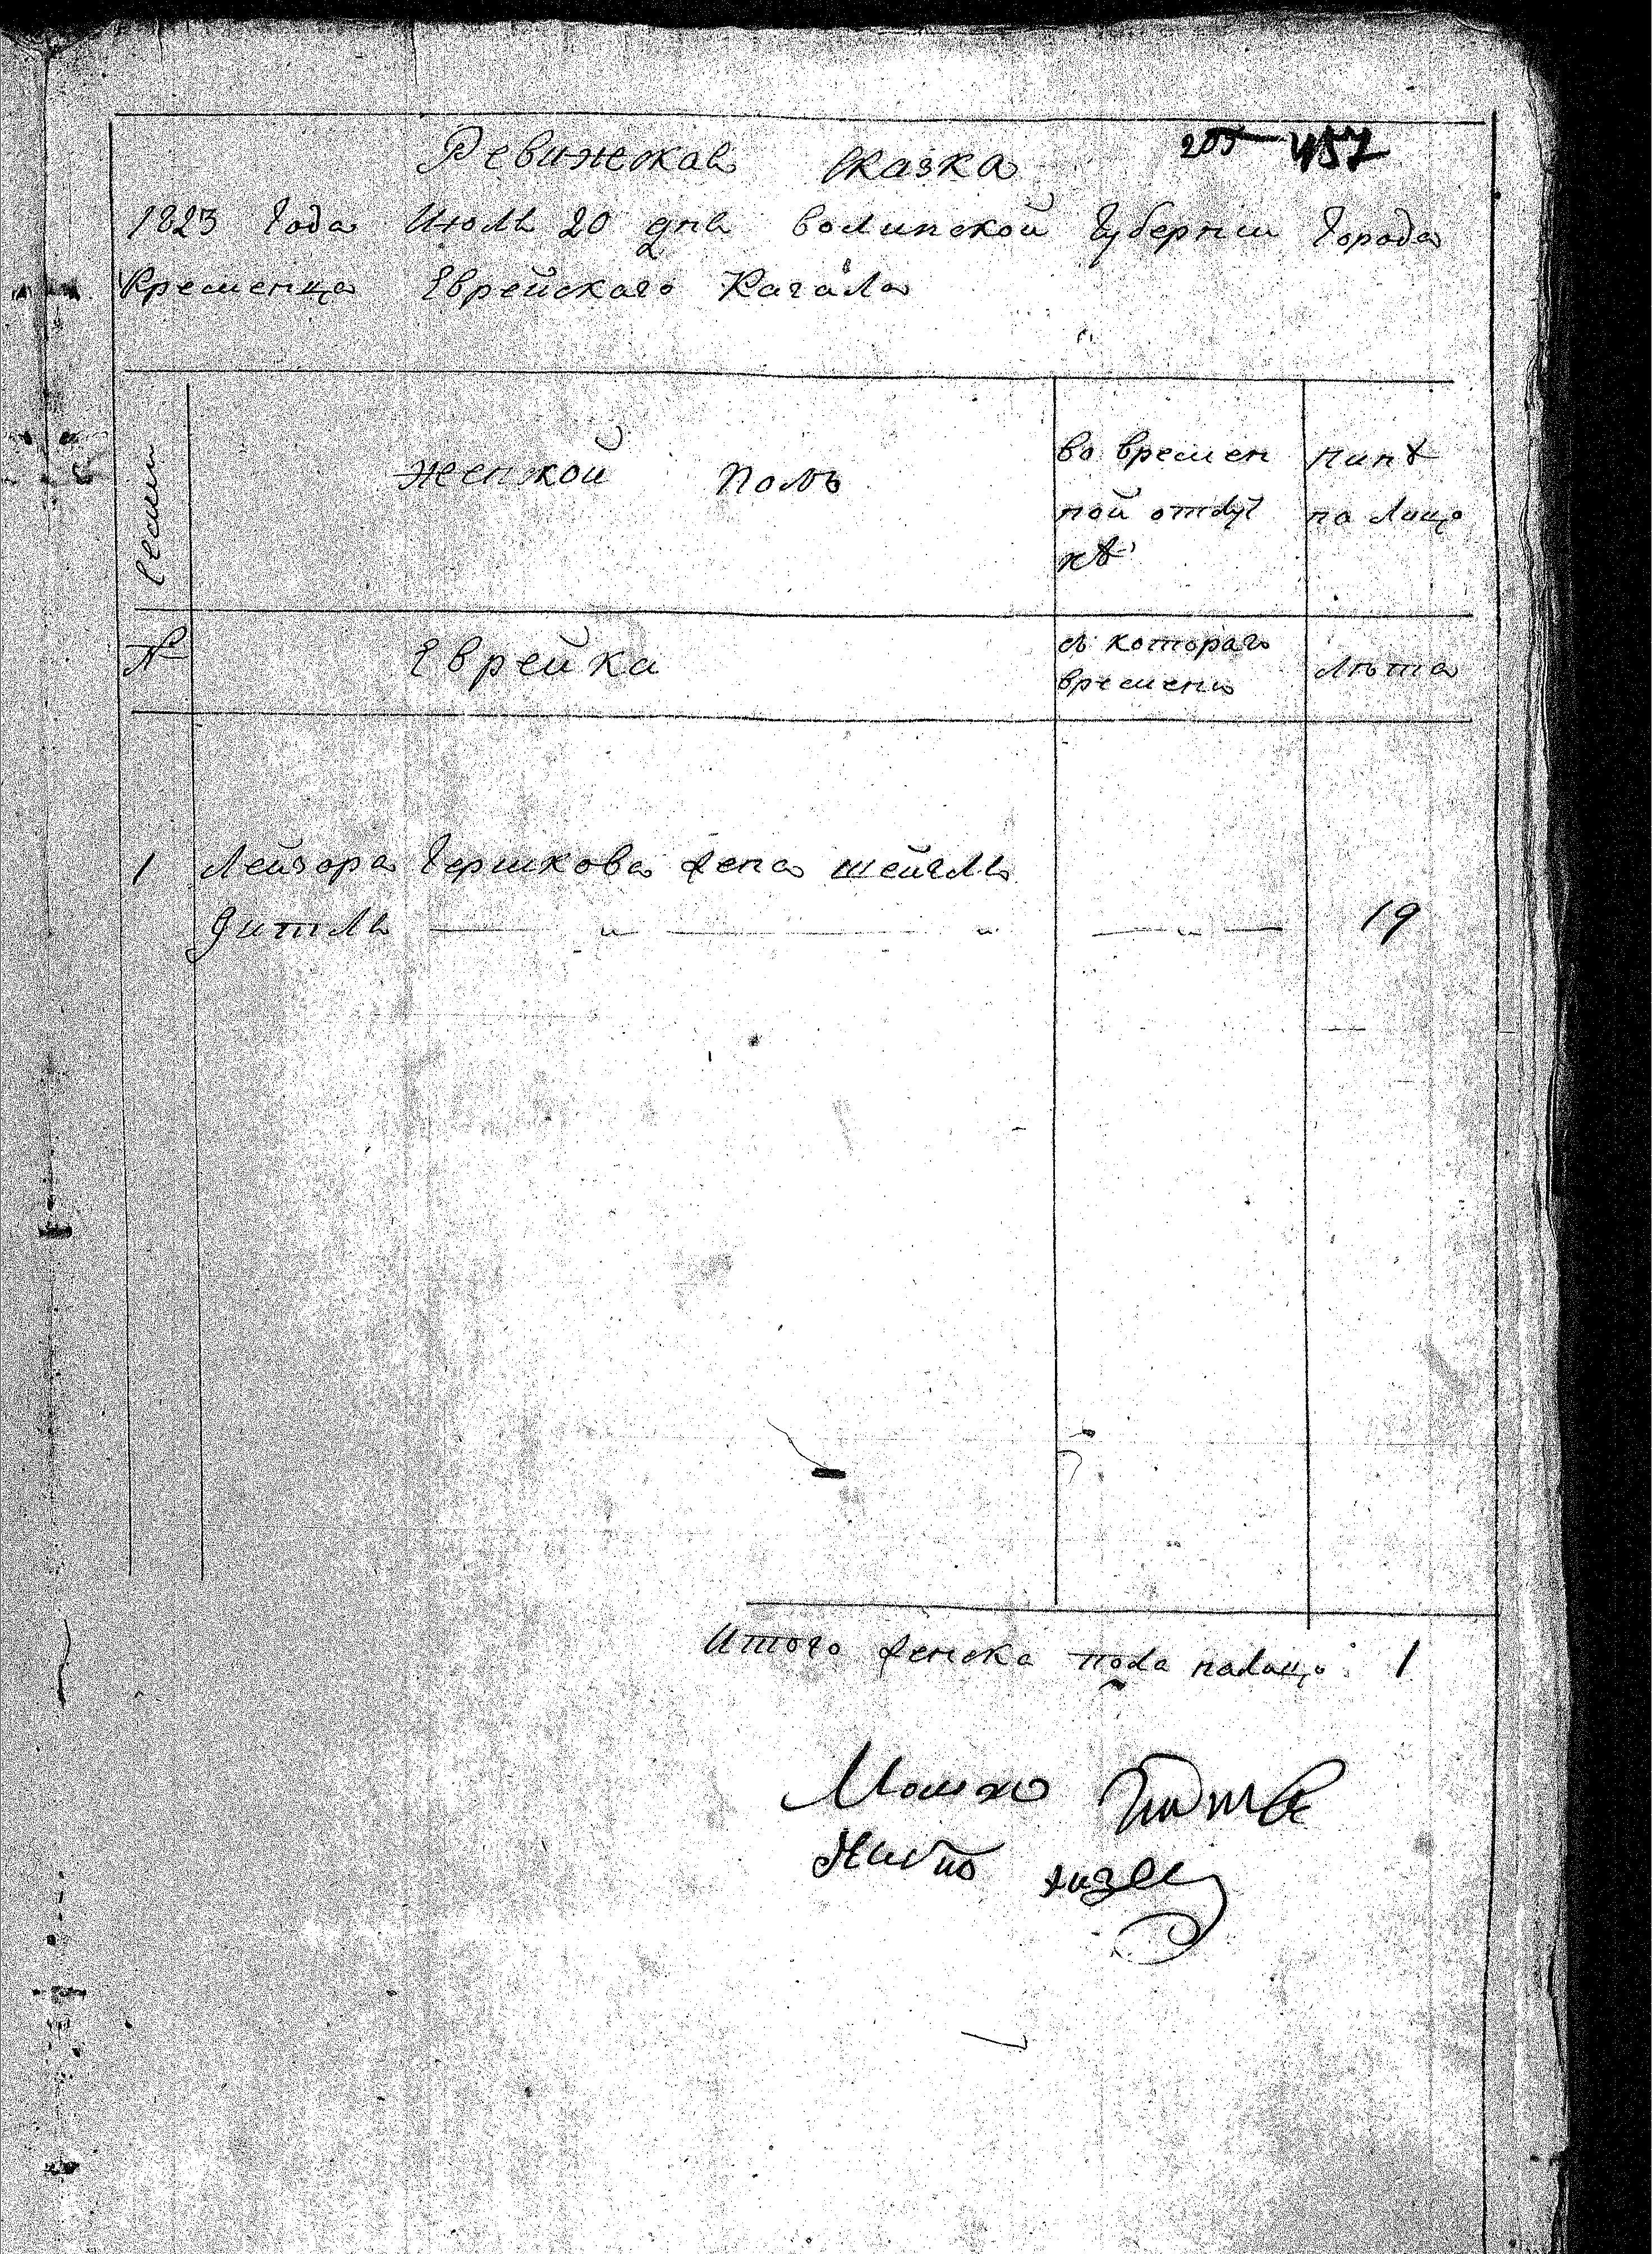 205 457
Ревижская Сказка
1823 Года Июля 20 дня волинской Губернии Города
Кременца Еврейского Кагала
Семьи
женской полъ
во времен
ной отлуч
кѣ
нинѣ
на лицо
№
Еврейка
съ котораго
времени
лѣта
1 Лейзора Гершкова жена шейгля
Дитля — " — " — " — 19
Итого женска пола налицо 1
Мошко